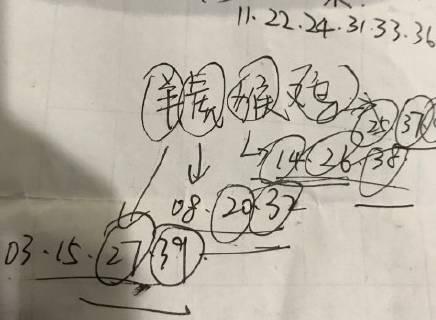 11.22.24.31.33.36
(羊虎猴鸡)
25 37
14.26.38
08.20.32
03.15.27.39